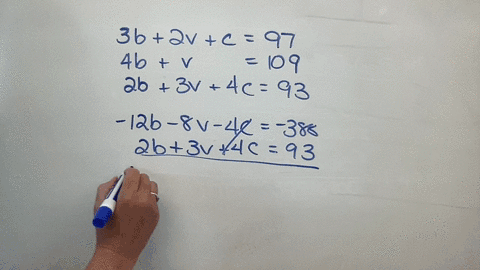 3b + 2v + c = 97
4b + v = 109
2b + 3v + 4c = 93
-12b - 8v - 4c = -388
2b + 3v + 4c = 93